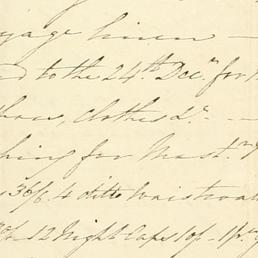 yage linen —
d to the 24th Decr for
shoes, clothes Dr —
hing for Mastr
30/6 4 ditto Waistcoa
12 Night Caps 10/- 1 pr